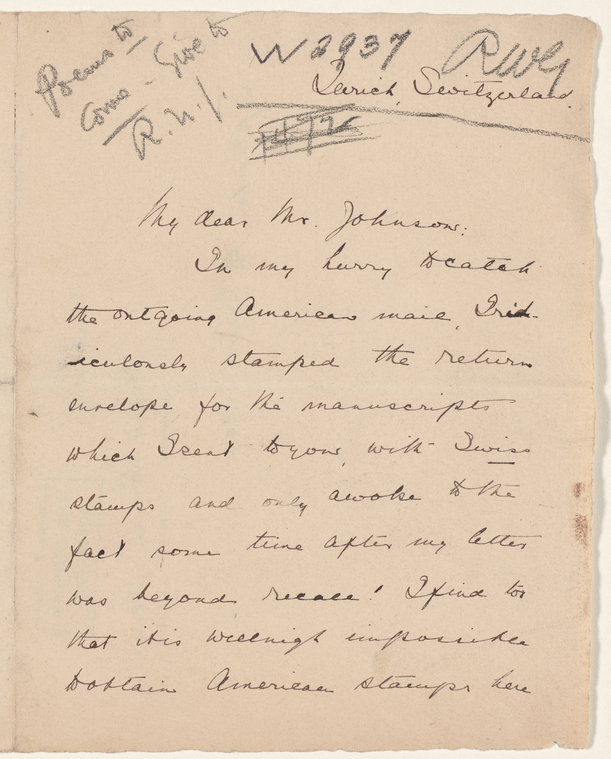 Poems to
Como - Give to
R.U.J.
W 2937
RWG
Zurich, Switzerland.
1472
My dear Mr. Johnson:
In my hurry to catch
the outgoing American mail, I rid-
iculously stamped the return
envelope for the manuscripts
which I sent to you, with Swiss
stamps and only awoke to the
fact some time after my letter
was beyond recall! I find too
that it is wellnigh impossible
to obtain American stamps here